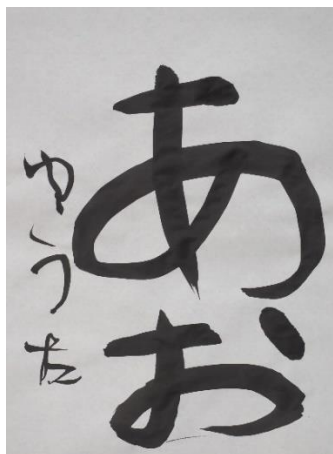 あお
ゆうた